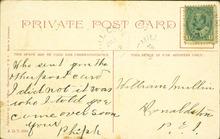 PRIVATE POST CARD
THIS SPACE MAY BE USED FOR CORRESPONDENCE
THIS SPACE IS FOR ADDRESS ONLY.
Who sent you the
other post card
I did not it was
who I told you
come over soon
yours
William Mullin
P.E.I